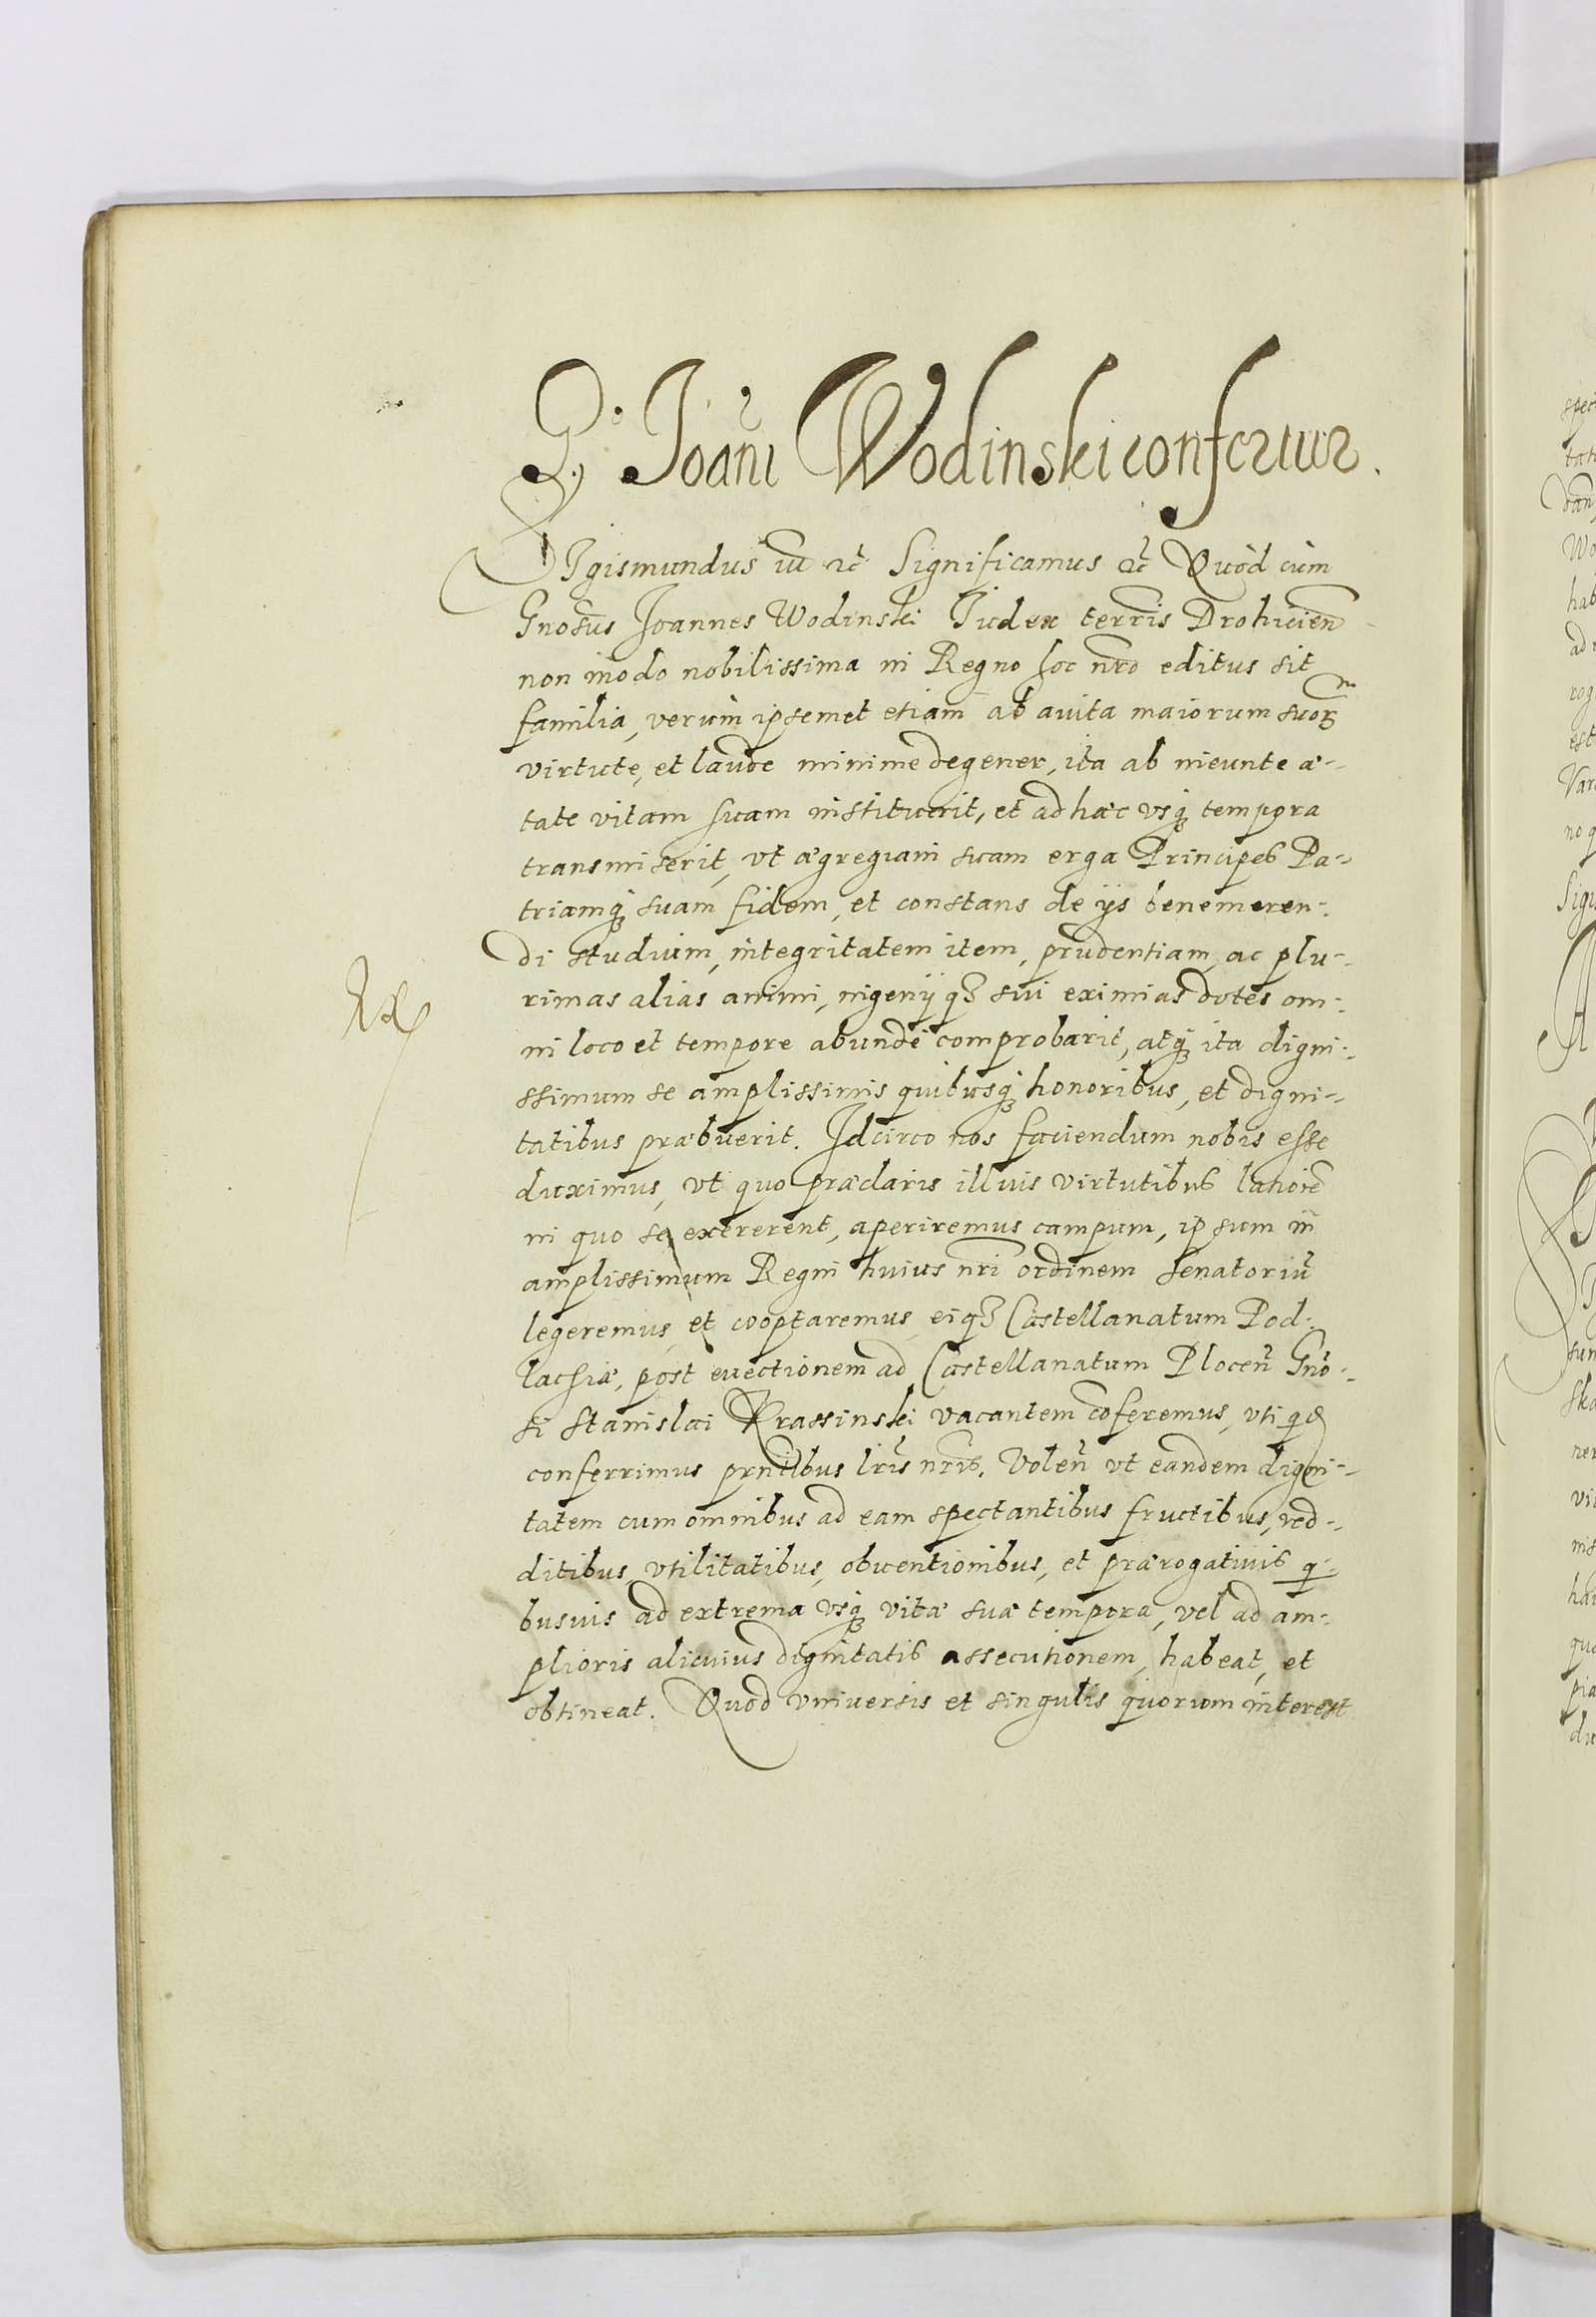 G. Joāni Wodinski confertur.
SIgismundus iii ꝛc̄ Significamus ꝛc̄ Quòd cùm
Gnosūs Joannes Wodinski Judex terrīs Drohicieñ
non modo nobilissima in Regno hoc nr̄o editus sit
familia, verùm ipsemet etiam ab auita maiorum suorᵐ
virtute, et laude minime degener, ita ab ineunte æ-
tate vitam suam instituerit, et ad hæc vsq; tempora
transmiserit, vt ægregiam suam erga Principes Pa-
triamq; suam fidem, et constans de ijs benemeren-
di studium, integritatem item, prudentiam, ac plu-
rimas alias animi, ingenijqꝫ sui eximias dotes om-
ni loco et tempore abundè comprobarit, atq; ita digni-
ssimum se amplissimis quibusq; honoribus, et digni-
tatibus præbuerit. Idcirco nos faciendum nobis esse
duximus, vt quo præclaris illius virtutibus latiorē
in quo se exererent, aperiremus campum, ipsum in
amplissimum Regni huius nr̄i ordinem senatoriū
legeremus, et cooptaremus, eiqꝫ Castellanatum Pod-
lachiæ, post euectionem ad Castellanatum Plocen̄ Gno-
si Stanislai Krassinski vacantem cōferemus, vti qd
conferrimus prn̄tibus lr̄is nr̄is. Volen̄ vt eandem digni-
tatem cum omnibus ad eam spectantibus fructibus, red-
ditibus, vtilitatibus, obuentionibus, et prærogatiuis q-
busuis ad extrema vsq; vitæ suæ tempora, vel ad am-
plioris alicuius dignitatis assecutionem, habeat, et
obtineat. Quod vniuersis et singulis quorum interest